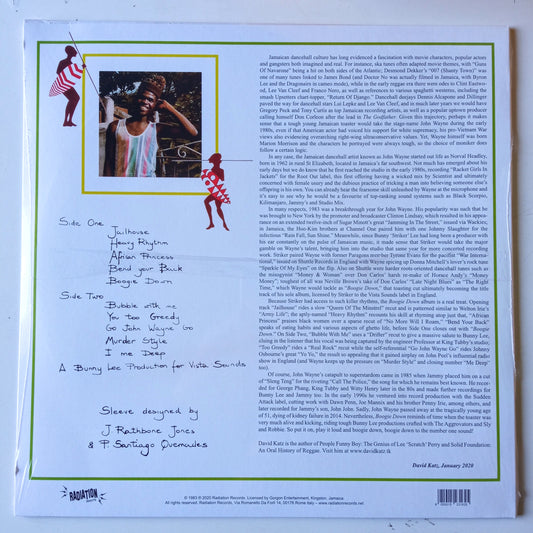 Side One
Jailhouse
Heavy Rhythm
African Princess
Bend your Back
Boogie Down
Side Two
Bubble with me
You too Greedy
Go John Wayne Go
Murder Style
I me Deep
A Bunny Lee Production for Vista Sounds
Sleeve designed by
J. Rathbone Jones
& P. Santiago Quemades
Jamaican dancehall culture has long evidenced a fascination with movie characters, popular actors
and gangsters both imagined and real. For instance, ska tunes often adapted movie themes, with "Guns
Of Navarone" being a hit on both sides of the Atlantic; Desmond Dekker's "007 (Shanty Town)" was
one of many tunes linked to James Bond (and Doctor No was actually filmed in Jamaica, with Byron
Lee and the Dragonairs in cameo mode), while in the early reggae era there were odes to Clint Eastwoo-
d, Lee Van Cleef and Franco Nero, as well as references to various spaghetti westerns, including the
smash Upsetters chart-topper, "Return Of Django." Dancehall deejays Dennis Alcapone and Dillinger
paved the way for dancehall stars Lui Lepke and Lee Van Cleef, and in much later years we would have
Gregory Peck and Tony Curtis as top Jamaican recording artists, as well as a popular uptown producer
calling himself Don Corleon after the lead in The Godfather. Given this trajectory, perhaps it makes
sense that a tough young Jamaican toaster would take the stage-name John Wayne during the early
1980s, even if that American actor had voiced his support for white supremacy, his pro-Vietnam War
views also evidencing overarching right-wing ultraconservative values. Yet, Wayne himself was born
Marion Morrison and the characters he portrayed were always tough, so the choice of moniker does
follow a certain logic.
In any case, the Jamaican dancehall artist known as John Wayne started out life as Norval Headley,
born in 1962 in rural St Elizabeth, located in Jamaica's far southwest. Not much has emerged about his
early days but we do know that he first reached the studio in the early 1980s, recording "Racket Girls In
Jackets" for the Root Out label, this first offering having a wicked mix by Scientist and ultimately
concerned with female usury and the dubious practice of tricking a man into believing someone else's
offspring is his own. You can already hear the fearsome skill unleashed by Wayne at the microphone and
it's easy to see why he would be a favourite of top-ranking sound systems such as Black Scorpio,
Kilimanjaro, Jammy's and Studio Mix.
In many respects, 1983 was a breakthrough year for John Wayne. His popularity was such that he
was brought to New York by the promoter and broadcaster Clinton Lindsay, which resulted in his appea-
rance on an extended twelve-inch of Sugar Minott's great "Jamming In The Street," issued via Wackies;
in Jamaica, the Hoo-Kim brothers at Channel One paired him with one Johnny Slaughter for the
infectious "Rain Fall, Sun Shine." Meanwhile, since Bunny 'Striker' Lee had long been a producer with
his ear constantly on the pulse of Jamaican music, it made sense that Striker would take the major
gamble on Wayne's talent, bringing him into the studio that same year for more concerted recording
work. Striker paired Wayne with former Paragons member Tyrone Evans for the pacifist "War Internat-
ional," issued on Shuttle Records in England with Wayne spicing up Donna Mitchell's lover's rock tune
"Sparkle Of My Eyes" on the flip. Also on Shuttle were harder roots-oriented dancehall tunes such as
the misogynist "Money & Woman" over Don Carlos' harsh re-make of Horace Andy's "Money
Money"; toughest of all was Neville Brown's take of Don Carlos' "Late Night Blues" as "The Right
Time," which Wayne would tackle as "Boogie Down," that toasting cut ultimately becoming the title
track of his sole album, licensed by Striker to the Vista Sounds label in England.
Because Striker had access to such killer rhythms, the Boogie Down album is a real treat. Opening
track "Jailhouse" rides a slow "Queen Of The Minstrel" recut and is patterned similar to Welton Irie's
"Army Life"; the aptly-named "Heavy Rhythm" recounts his skill at rhyming atop just that, "African
Princess" praises black women over a sparse recut of "No More Will I Roam;" "Bend Your Back"
speaks of eating habits and various aspects of ghetto life, before Side One closes out with "Boogie
Down." On Side Two, "Bubble With Me" uses a "Drifter" recut to give a massive salute to Bunny Lee,
cluing in the listener that his vocal was being captured by the engineer Professor at King Tubby's studio;
"Too Greedy" rides a "Real Rock" recut while the self-referential "Go John Wayne Go" rides Johnny
Osbourne's great "Yo Yo," the result so appealing that it gained airplay on John Peel's influential radio
show in England (and Wayne keeps up the pressure on "Murder Style" and closing number "Me Deep"
too).
Of course, John Wayne's catapult to superstardom came in 1985 when Jammy placed him on a cut
of "Sleng Teng" for the riveting "Call The Police," the song for which he remains best known. He recor-
ded for George Phang, King Tubby and Witty Henry later in the 80s and made further recordings for
Bunny Lee and Jammy too. In the early 1990s he ventured into record production with the Sudden
Attack label, cutting work with Dawn Penn, Joe Mannix and his brother Penny Irie, among others, and
later recorded for Jammy's son, John John. Sadly, John Wayne passed away at the tragically young age
of 51, dying of kidney failure in 2014. Nevertheless, Boogie Down reminds of time when the toaster was
very much alive and kicking, riding tough Bunny Lee productions crafted with The Aggrovators and Sly
and Robbie. So put it on, play it loud and boogie down, boogie down to the number one sound!
David Katz is the author of People Funny Boy: The Genius of Lee 'Scratch' Perry and Solid Foundation:
An Oral History of Reggae. Visit him at www.davidkatz.tk
David Katz, January 2020
RADIATION
© 1983 ℗ 2020 Radiation Records. Licensed by Gorgon Entertainment, Kingston, Jamaica
All rights reserved. Radiation Records. Via Romanello Da Forlì 14, 00176 Rome Italy - www.radiationrecords.net